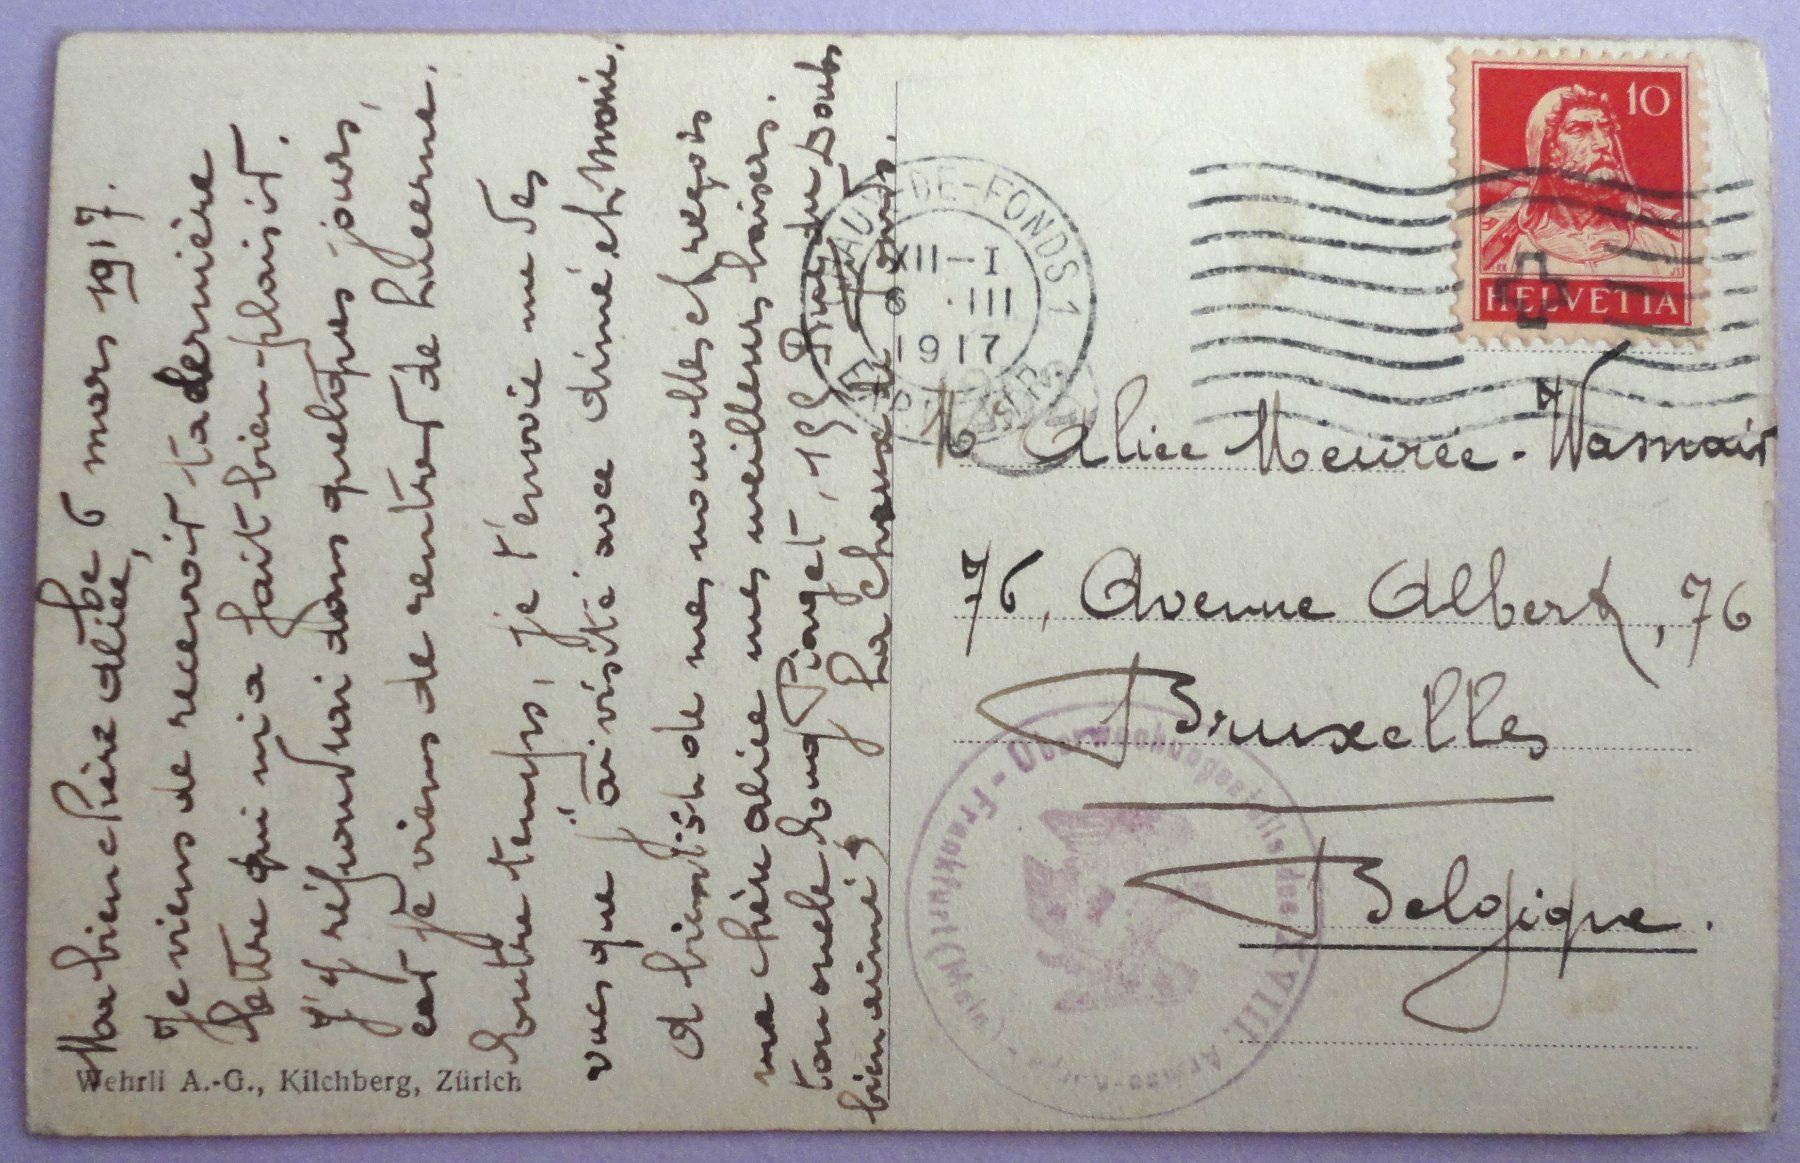 le 6 mars 1917.
Ma bien chère alice,
Je viens de recevoir ta dernière
lettre qui m'a fait bien-plaisir.
J'y répondrai dans quelques-jours,
car je viens de rentrer de Lucerne.
Entre temps, je t'envoie une des
vues que j'ai visité avec aimé et moi.
A bientôt de mes nouvelles et reçois
ma chère alice mes meilleurs baisers.
ton oncle Piaget, 155 du Doubs
bien aimé La Chaux de Fonds.
Wehrli A.-G., Kilchberg, Zürich
10
HELVETIA
CHAUX-DE-FONDS 1
XII-I
6 .III
1917
M Alice Meurée-Wasnair
76, Avenue Albert, 76
Bruxelles
Belgique.
Überwachungsstelle des XVIII. Armee-Korps - Frankfurt (Main)